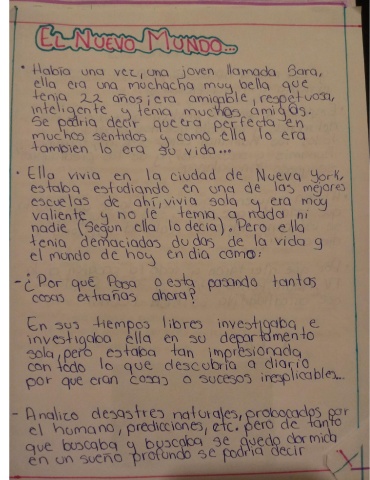 EL NUEVO MUNDO...
• Había una vez, una joven llamada Sara,
ella era una muchacha muy bella que
tenia 22 años; era amigable, respetuosa,
inteligente y tenia muchos amigos.
Se podria decir que era perfecta en
muchos sentidos y como ella lo era
tambien lo era su vida...
• Ella vivia en la ciudad de Nueva York,
estaba estudiando en una de las mejores
escuelas de ahí, vivia sola y era muy
valiente y no le temia a nada ni
nadie (Según ella lo decia). Pero ella
tenia demaciadas dudas de la vida y
el mundo de hoy en dia como:
- ¿Por qué Pasa o esta pasando tantas
cosas extrañas ahora?
En sus tiempos libres investigaba e
investigaba ella en su departamento
sola, pero estaba tan impresionada
con todo lo que descubria a diario
por que eran cosas o sucesos inesplicables...
- Analico desastres naturales, probocados por
el humano, predicciones, etc. pero de tanto
que buscaba y buscaba se quedo dormida
en un sueño profundo se podria decir